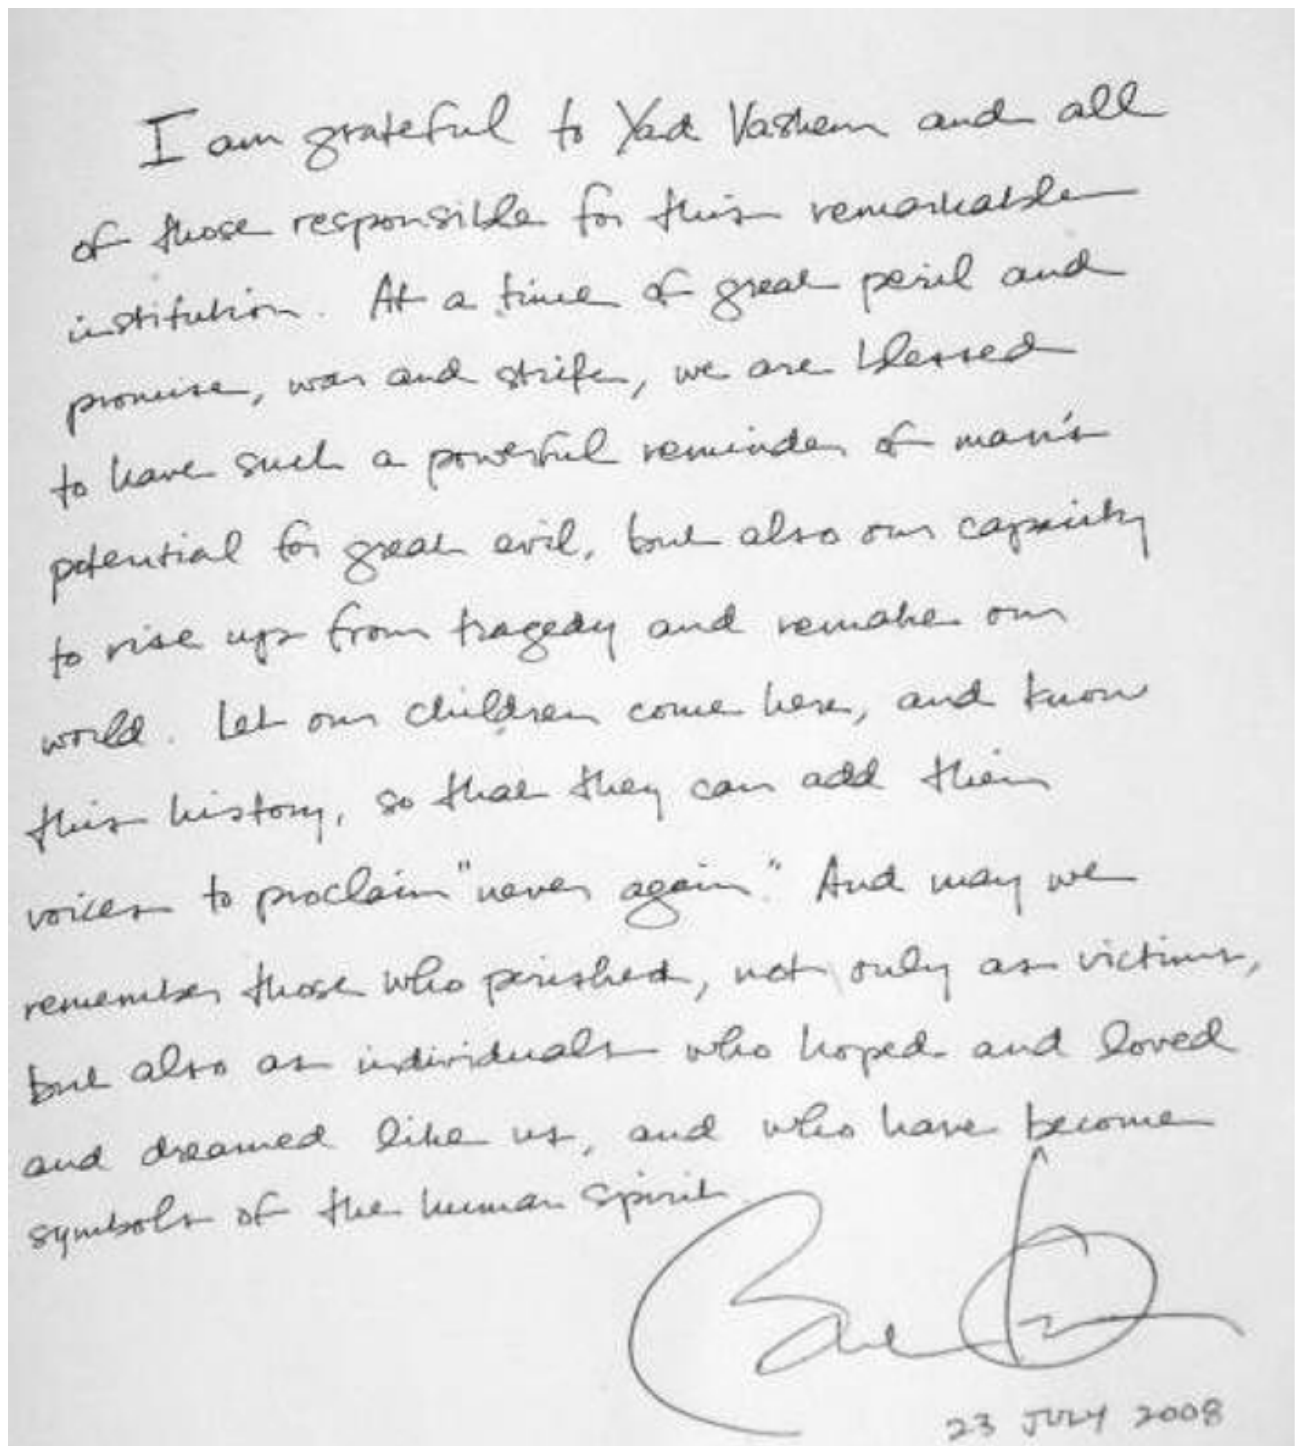 I am grateful to Yad Vashem and all
of those responsible for this remarkable
institution. At a time of great peril and
promise, war and strife, we are blessed
to have such a powerful reminder of man's
potential for great evil, but also our capacity
to rise up from tragedy and remake our
world. Let our children come here, and know
this history, so that they can add their
voices to proclaim "never again." And may we
remember those who perished, not only as victims,
but also as individuals who hoped and loved
and dreamed like us, and who have become
symbols of the human spirit.
23 JULY 2008